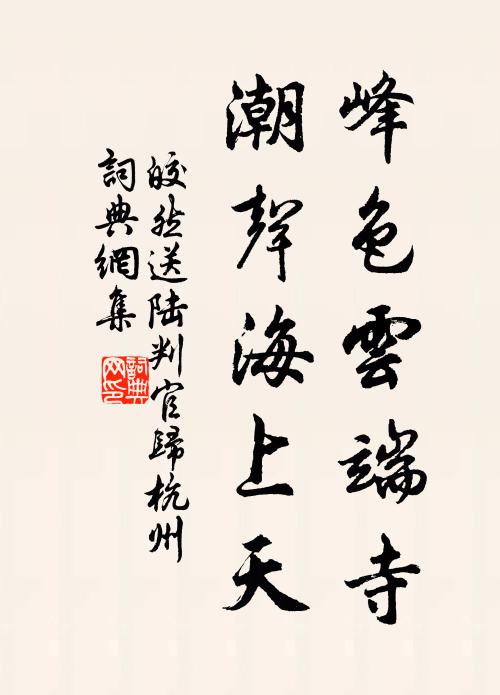 峰色雲端寺
潮聲海上天
皎然送陆判官歸杭州
詞典網集
詞典
网印